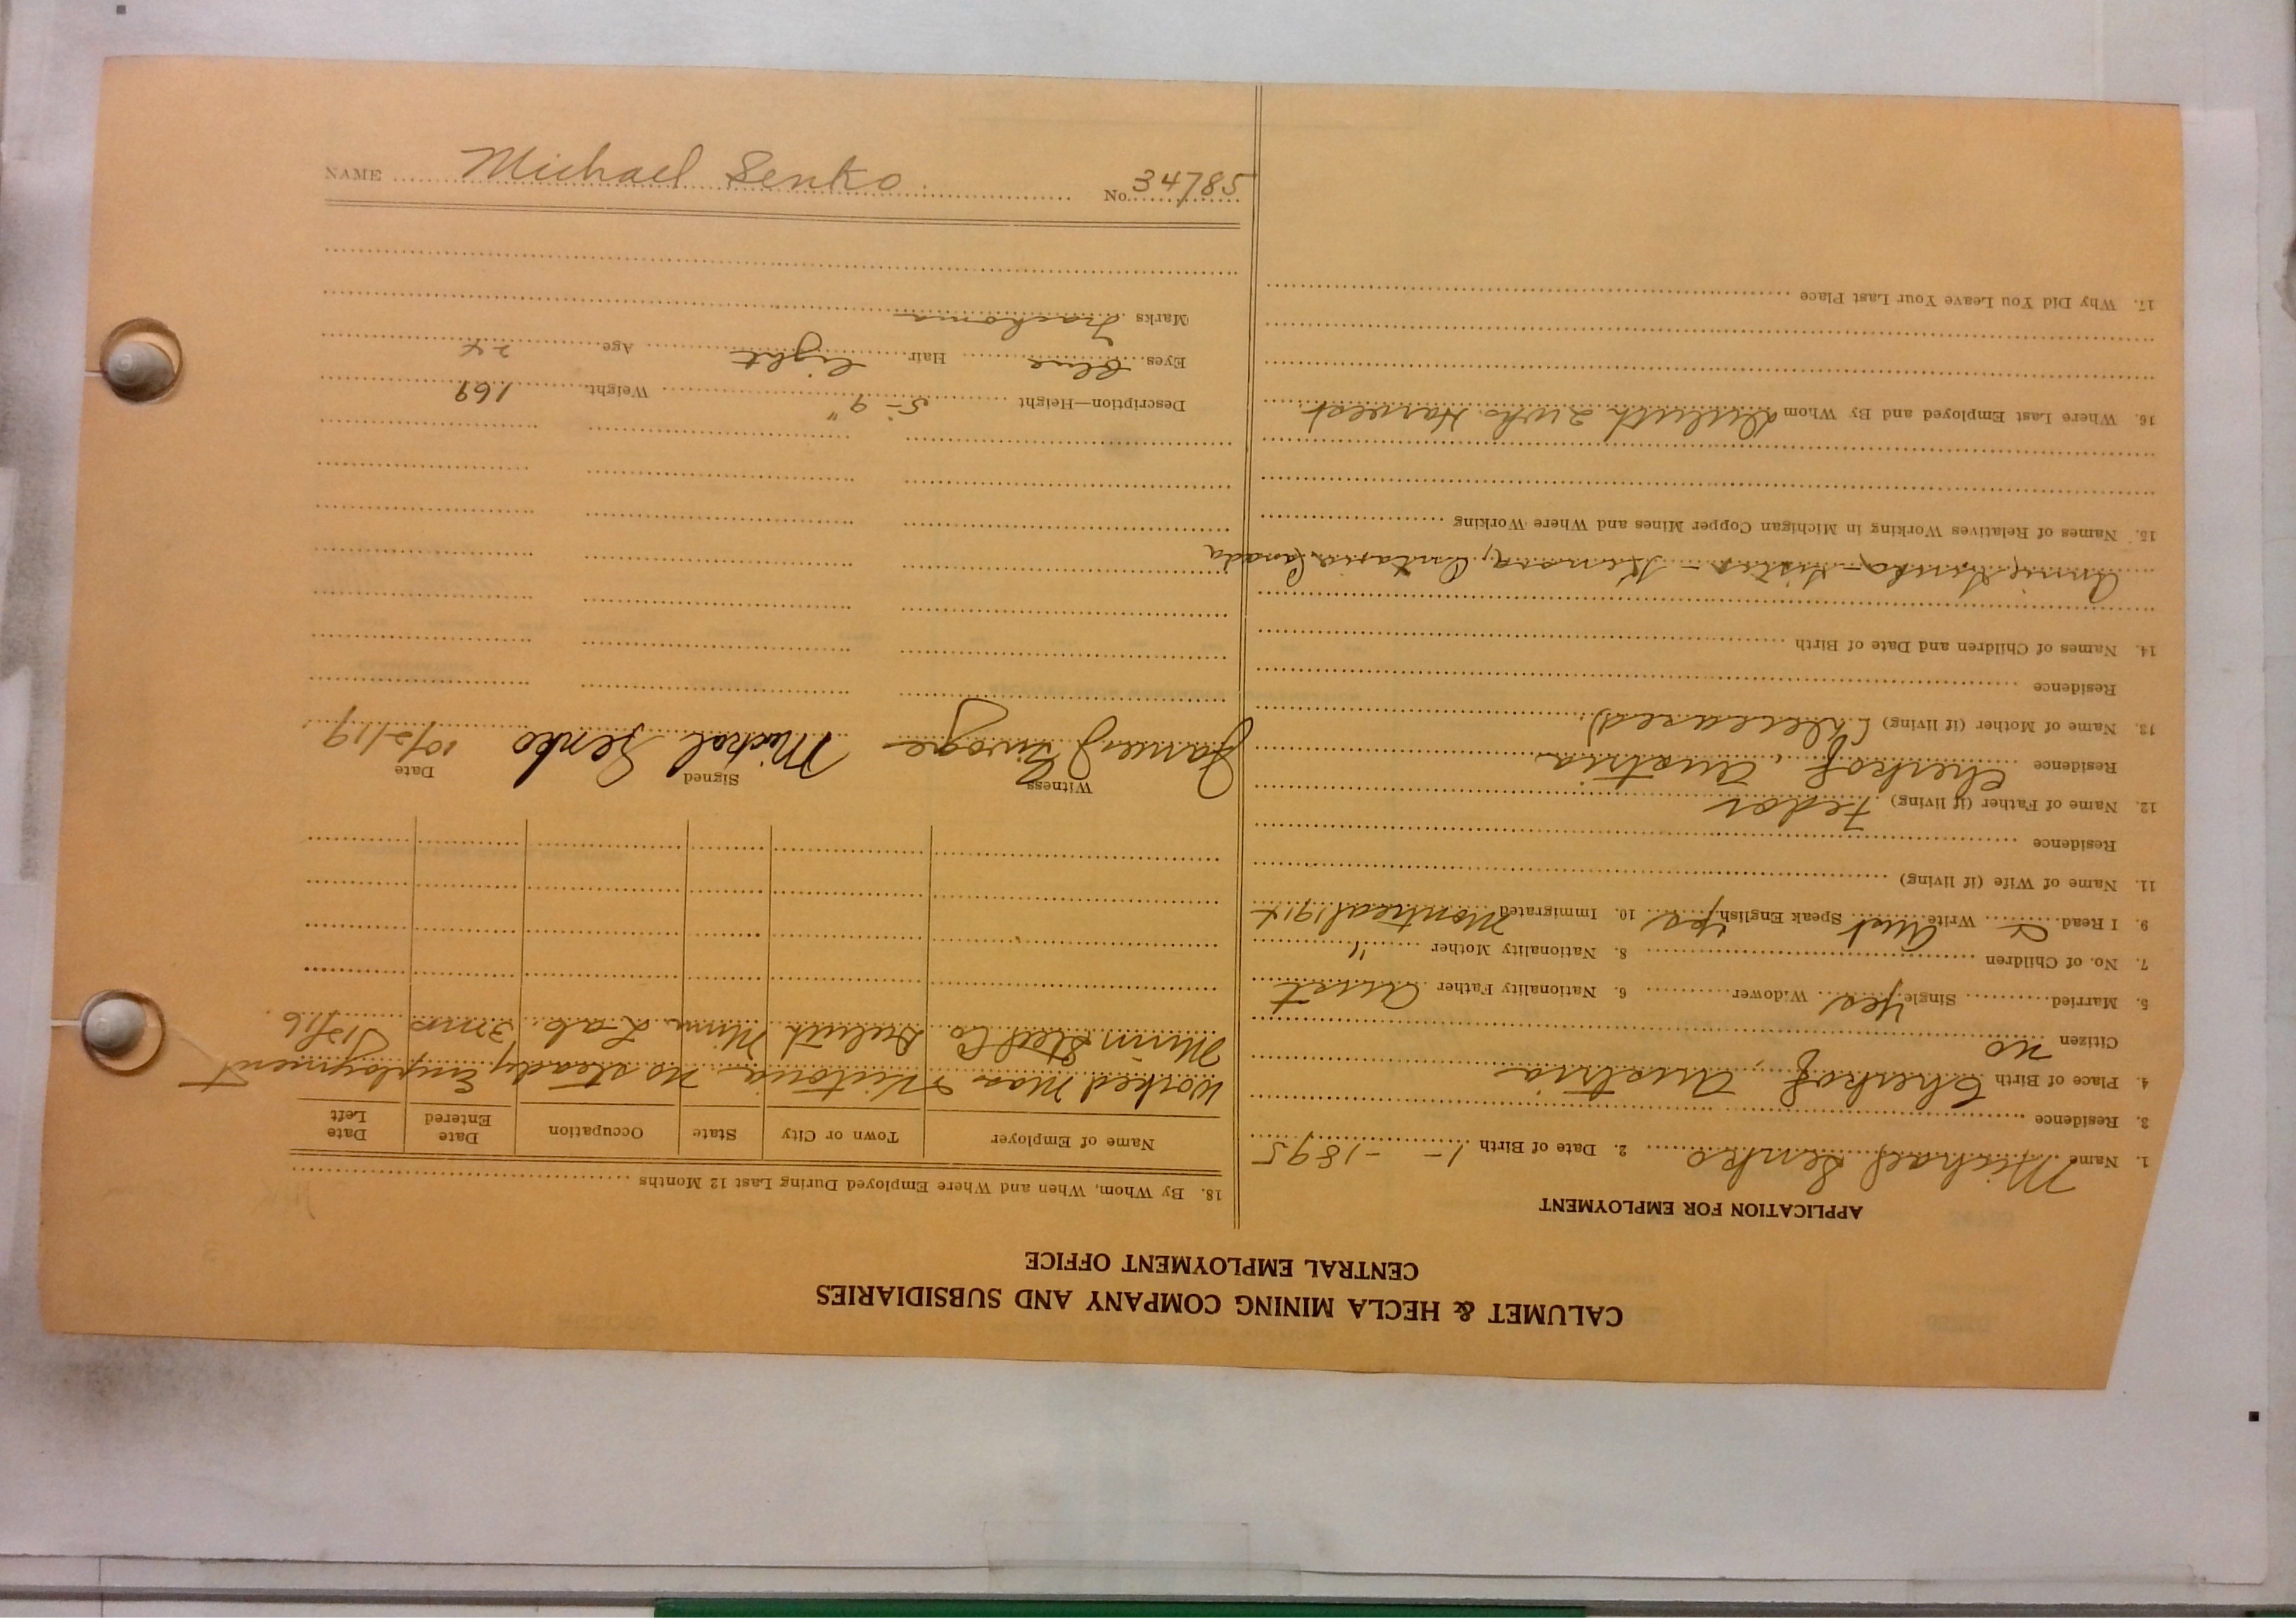 CALUMET & HECLA MINING COMPANY AND SUBSIDIARIES
CENTRAL EMPLOYMENT OFFICE
APPLICATION FOR EMPLOYMENT
1. Name Michael Senko 2. Date of Birth 1 - 1895
3. Residence
4. Place of Birth Cherkof, Austria
Citizen no
5. Married Single yes Widower 6. Nationality Father Aust
7. No. of Children 8. Nationality Mother "
9. I Read Write Aust Speak English yes 10. Immigrated Montreal 1914
11. Name of Wife (if living)
Residence
12. Name of Father (if living) Fedor
Residence Cherkof, Austria
13. Name of Mother (if living) (deceased)
Residence
14. Names of Children and Date of Birth
Annie Senko - Sister - Kenora, Ontario Canada
15. Names of Relatives Working in Michigan Copper Mines and Where Working
16. Where Last Employed and By Whom Duluth 2 wks. Harvest
17. Why Did You Leave Your Last Place
18. By Whom, When and Where Employed During Last 12 Months
Name of Employer Town or City State Occupation Date Entered Date Left
Worked Mass & Victoria no steady Employment
Minn Steel Co. Duluth Minn Lab. 3 mos
Witness Signed Date
James Mickal Senko 10/2/19
Description—Height 5-9" Weight 169
Eyes Blue Hair light Age 24
Marks Trachoma
NAME Michael Senko No. 34785